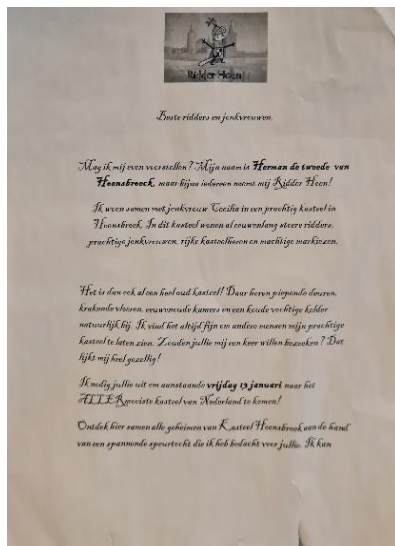 Ridder Hoen
Beste ridders en jonkvrouwen,
Mag ik mij even voorstellen? Mijn naam is Herman de tweede van
Hoensbroeck, maar bijna iedereen noemt mij Ridder Hoen!
Ik woon samen met jonkvrouw Cecilia in een prachtig kasteel in
Hoensbroek. In dit kasteel wonen al eeuwenlang stoere ridders,
prachtige jonkvrouwen, rijke kasteelheren en machtige markiezen.
Het is dan ook al een heel oud kasteel! Daar horen piepende deuren,
krakende vloeren, eeuwenoude kamers en een koude vochtige kelder
natuurlijk bij. Ik vind het altijd fijn om andere mensen mijn prachtige
kasteel te laten zien. Zouden jullie mij een keer willen bezoeken? Dat
lijkt mij heel gezellig!
Ik nodig jullie uit om aanstaande vrijdag 13 januari naar het
ALLERmooiste kasteel van Nederland te komen!
Ontdek hier samen alle geheimen van Kasteel Hoensbroek aan de hand
van een spannende speurtocht die ik heb bedacht voor jullie. Ik kan